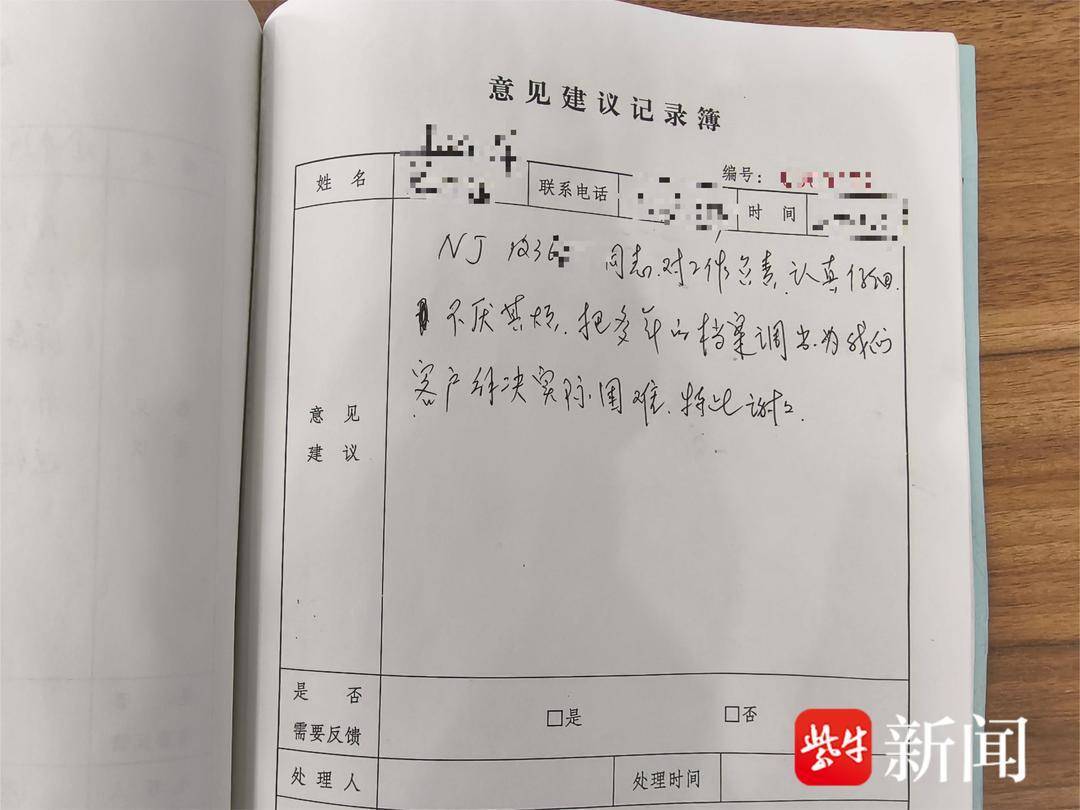 意见建议记录簿
编号：
姓名 联系电话 时间
NJ 同志.对工作负责.认真仔细.
不厌其烦.把多年的档案调出.为我们
客户解决实际困难.特此谢谢
意见
建议
是否
需要反馈
□是 □否
处理人 处理时间
紫牛新闻